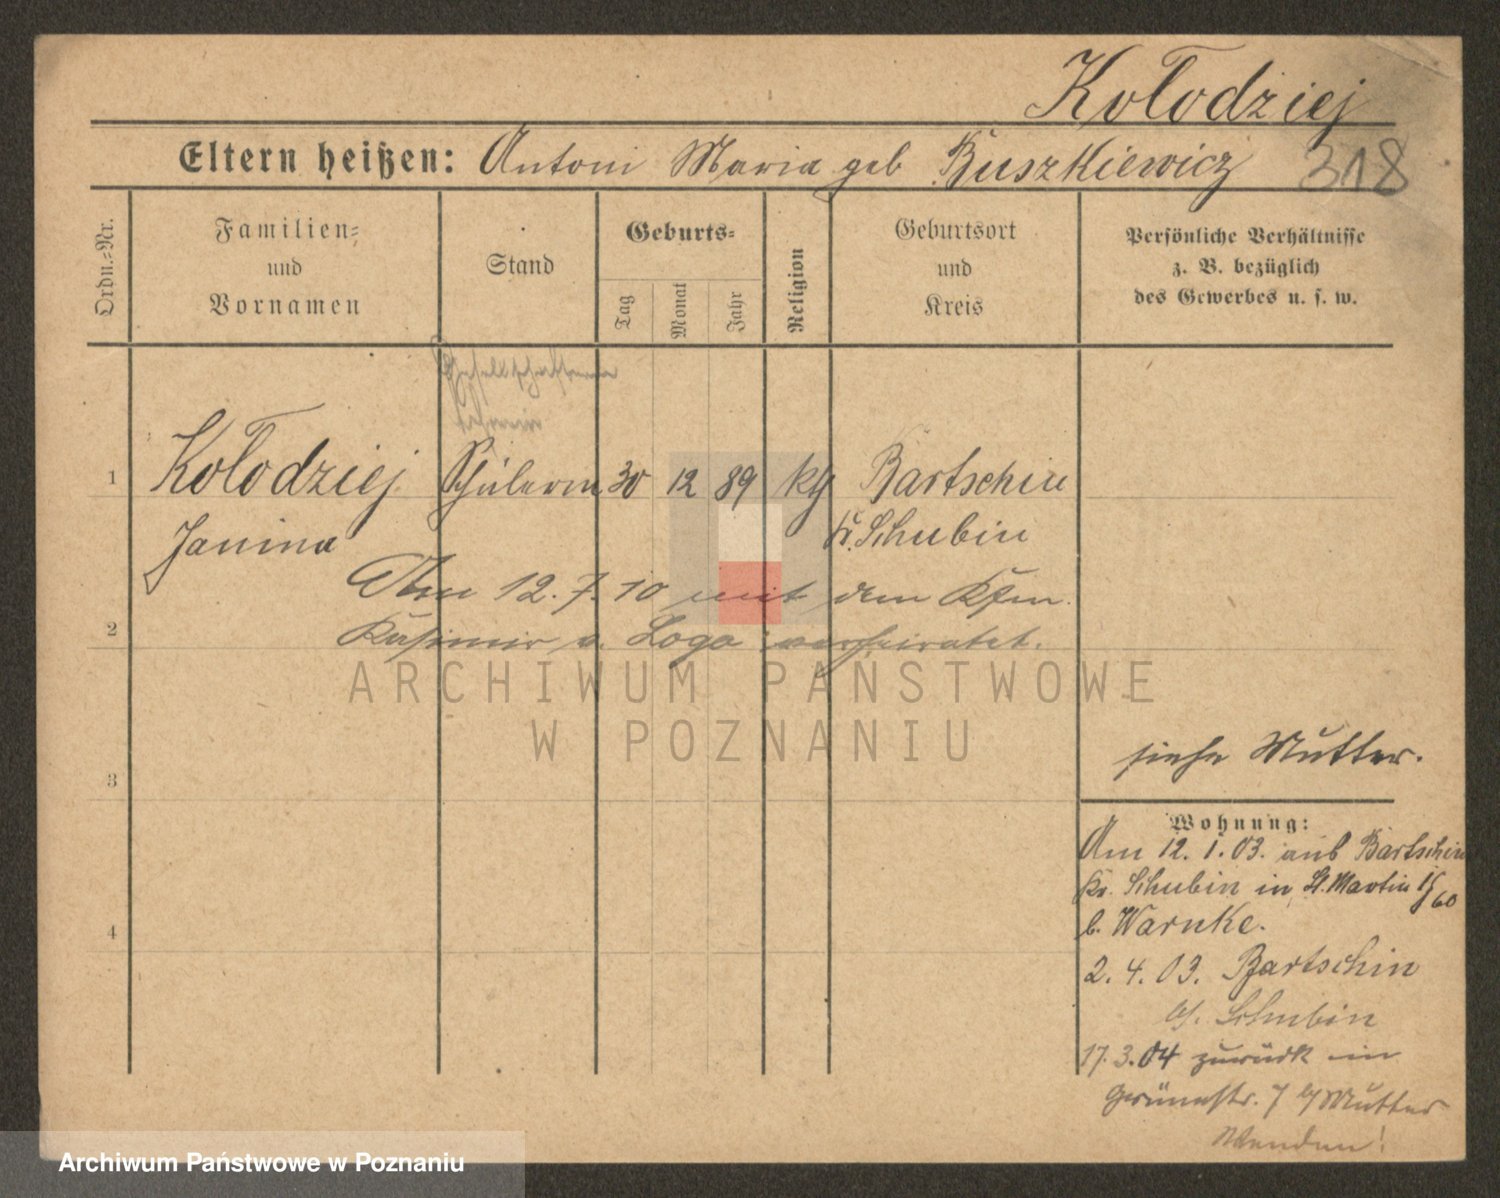 Kołodziej
Eltern heißen: Antoni Maria geb Buszkiewicz
318
Ordn.=Nr.
Familien=
und
Vornamen
Stand
Geburts=
Tag
Monat
Jahr
Religion
Geburtsort
und
Kreis
Persönliche Verhältnisse
z. B. bezüglich
des Gewerbes u. s. w.
1
Kołodziej Schülerin 30 12 89 kth Bartschin
Janina Kr. Schubin
Am 12.7.10 mit dem Kfm.
2
Kasimir v. Loga verheiratet.
ARCHIWUM PAŃSTWOWE
W POZNANIU
siehe Mutter.
3
Wohnung:
Am 12.1.03. aus Bartschin
Kr. Schubin in St. Martin
b. Warnke.
4
2.4.03. Bartschin
Schubin
17.3.04 zurück in
7 b/ Mutter
Wenden!
Archiwum Państwowe w Poznaniu